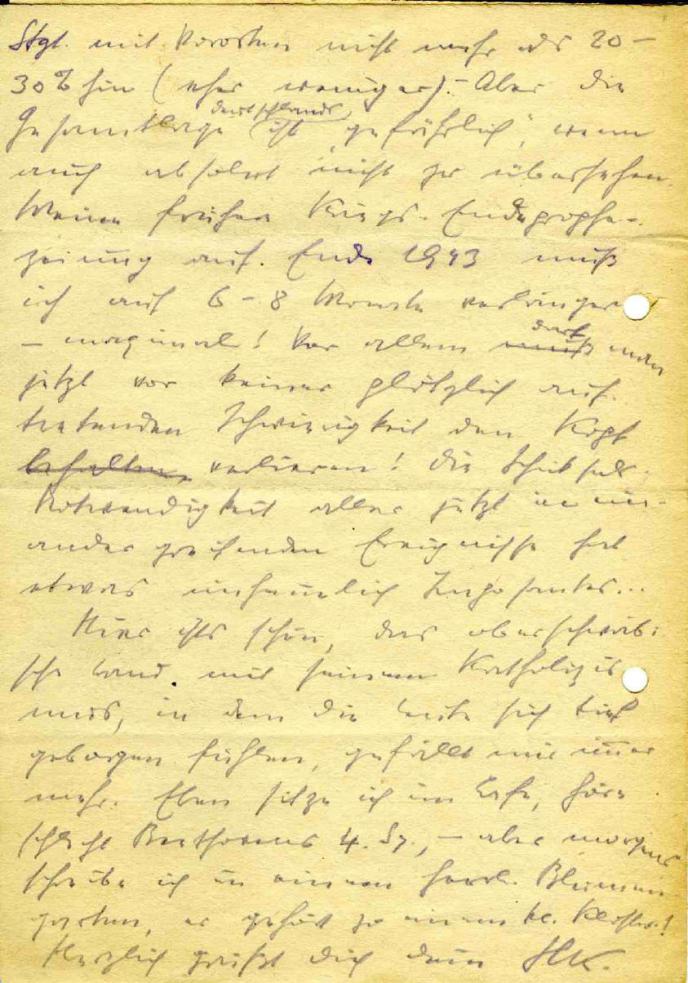 Stgt. mit Vororten nicht mehr als 20–
30% hin (eher weniger).– Aber die
Gesamtlage Deutschlands ist „gefährlich“, wenn
auch absolut nicht zu übersehen.
Meine frühere Kriegs-Endeprophe-
zeiung auf. Ende 1943 muß
ich auf 6–8 Monate verlängern
– maximal! Vor allem muß darf man
jetzt vor keiner plötzlich auf-
tretenden Schwierigkeit den Kopf
behalten, verlieren! Die Schicksals-
Notwendigkeit aller jetzt inein-
ander greifenden Ereignisse hat
etwas unheimlich Imposantes...
Hier ists schön, das oberschwäbi-
sche Land mit seinem Katholizis-
mus, in dem die Leute sich tief
geborgen fühlen, gefällt mir immer
mehr. Eben sitze ich im Cafe, höre
schlecht Beethovens 4. Sy., – aber morgens
schreibe ich in einem herrl. Blumen-
garten, er gehört zu einem kl. Kloster!
Herzlich grüßt dich dein HK.